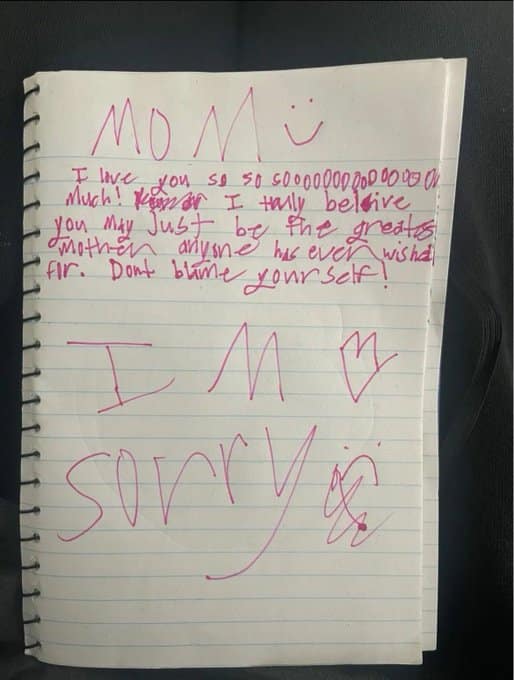 MOM :)
I love you so so sooooooooooooo
Much! I beleive
you May Just be the greates
mother anyone has ever wished
for. Dont blame yourself!
I M ♡
sorry